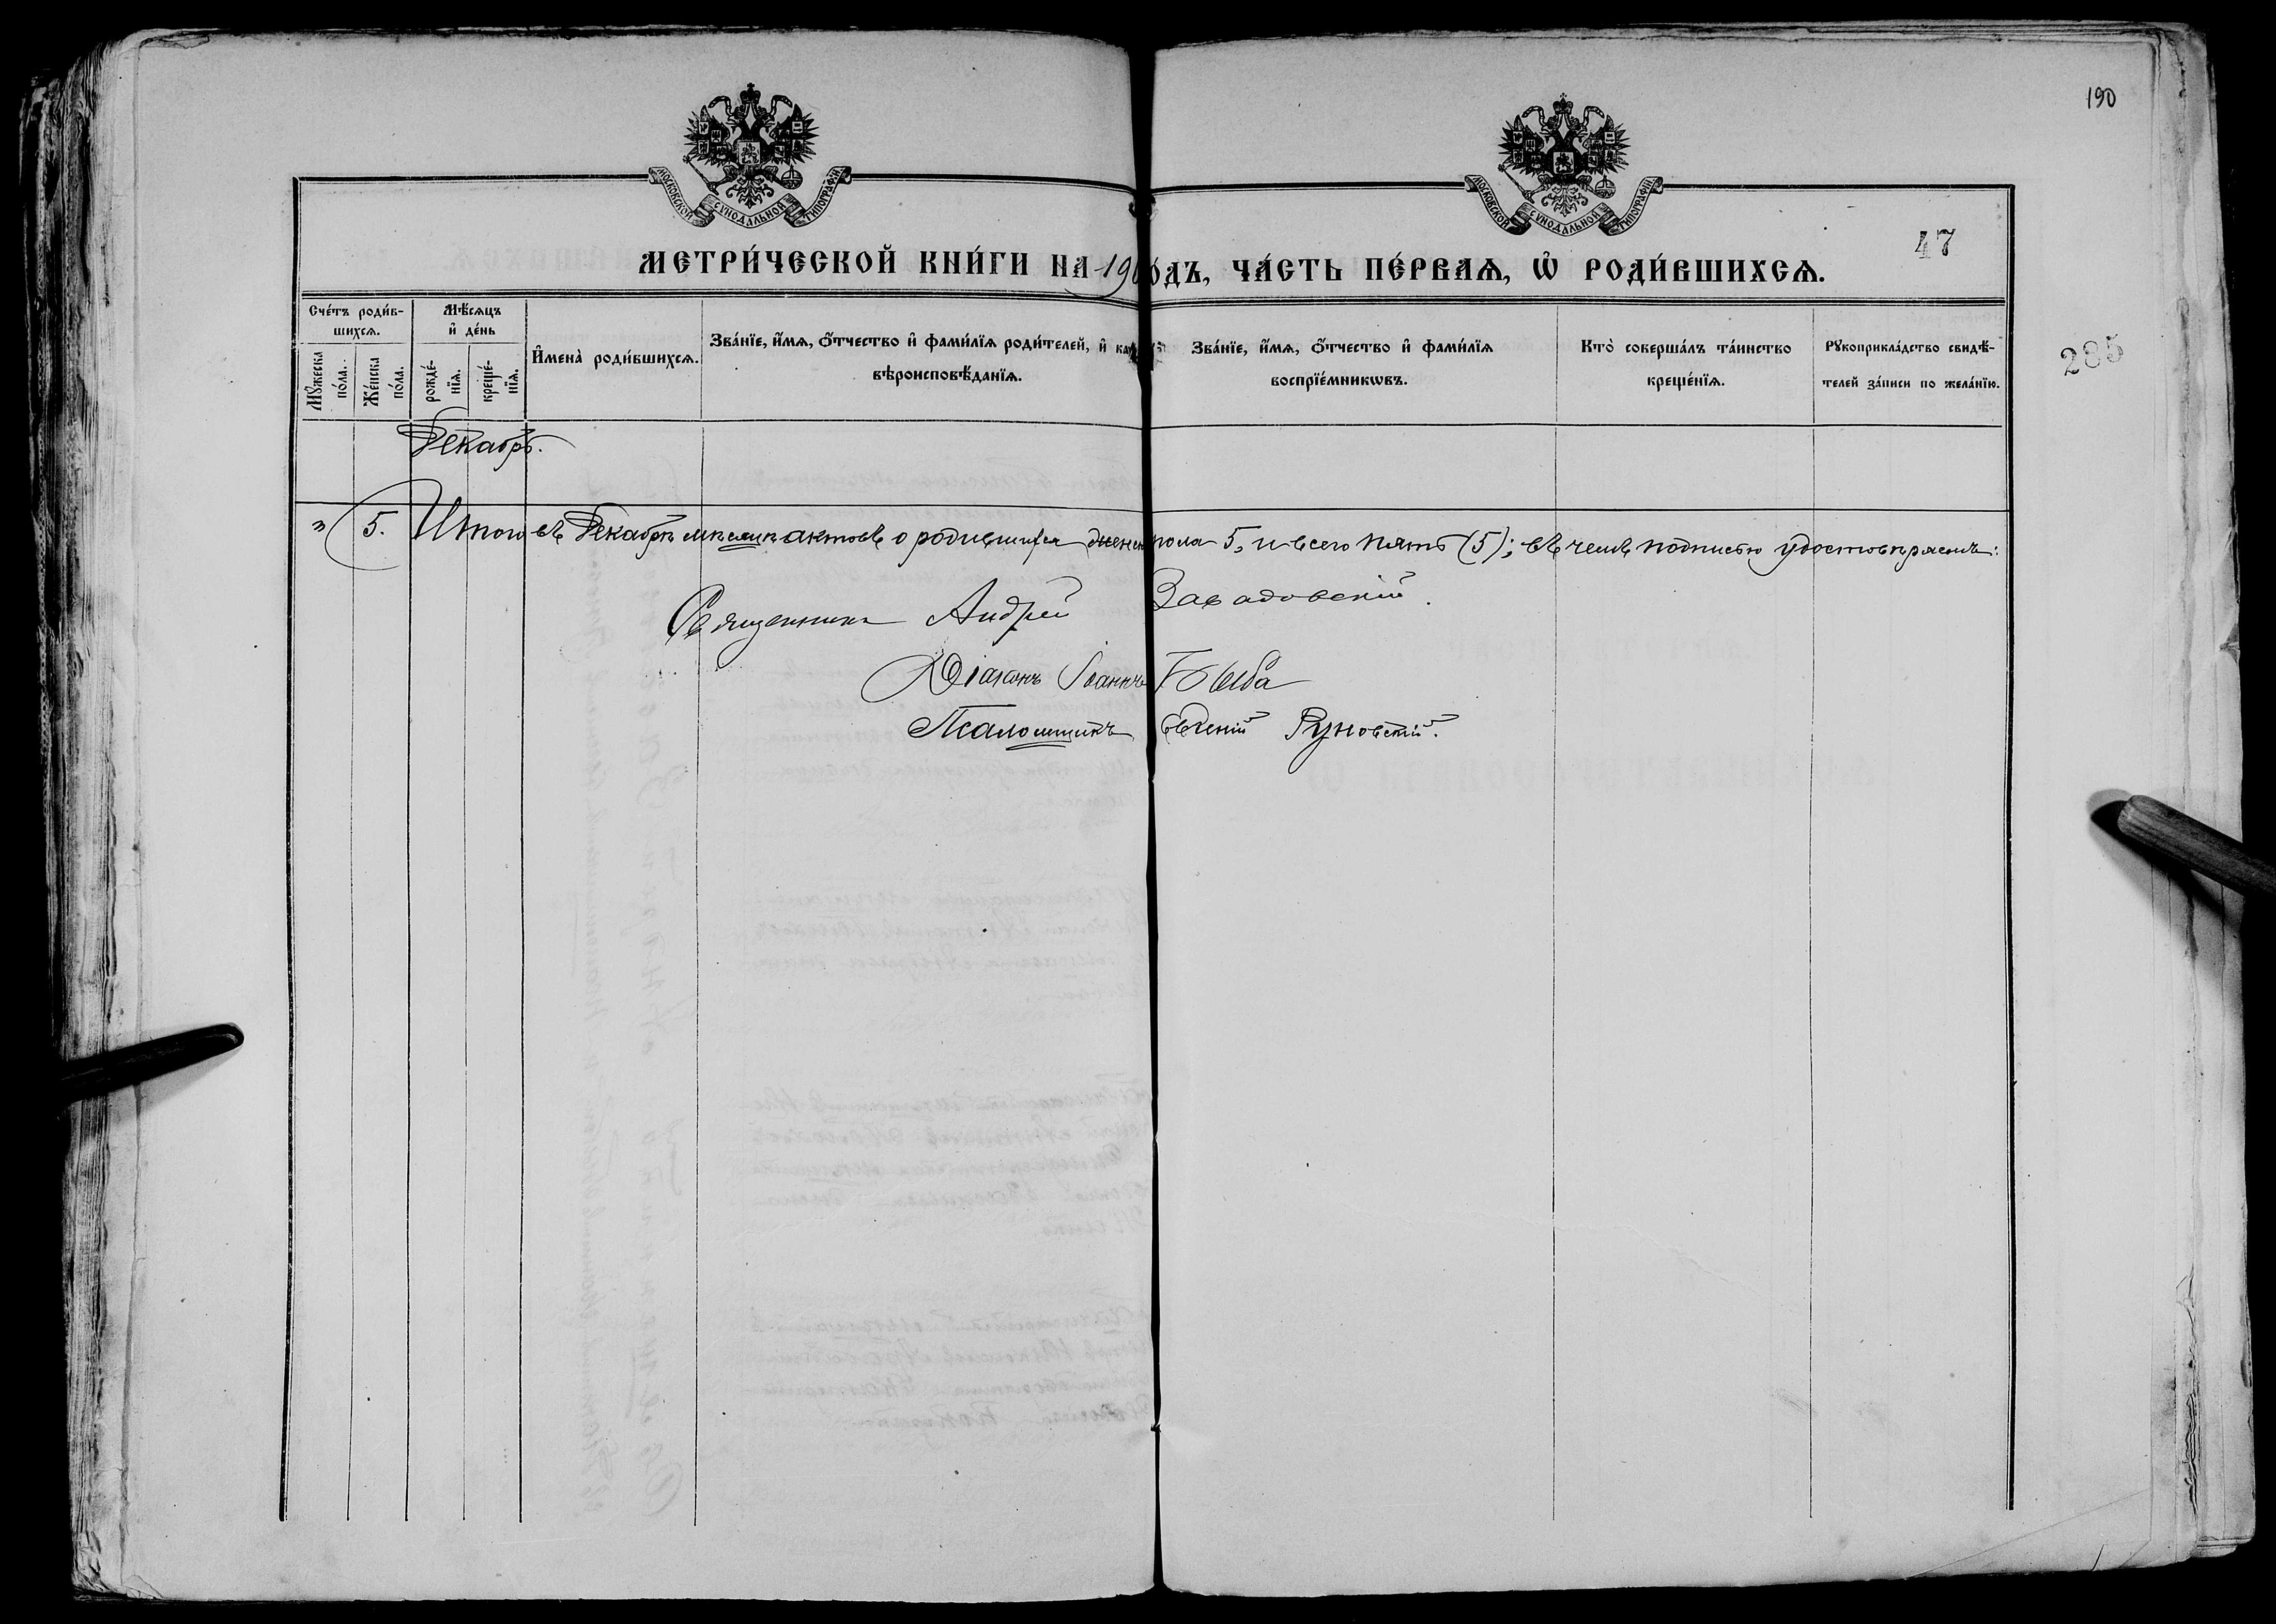 190
МОСКОВСКОЙ СѴНОДАЛЬНОЙ ТИПОГРАФІИ
МОСКОВСКОЙ СѴНОДАЛЬНОЙ ТИПОГРАФІИ
47
МЕТРИ́ЧЕСКОЙ КНИ́ГИ НА 190 ОДЪ, ЧА́СТЬ ПЕ́РВАѦ, Ѡ РОДИ́ВШИХСѦ.
285
Сче́тъ роди́в-
шихсѧ.
Мꙋ́жеска по́ла.
Же́нска по́ла.
Мѣ́сѧцъ
и҆ де́нь
рожде́-
нїѧ.
креще́-
нїѧ.
И҆мена̀ роди́вшихсѧ.
Зва́нїе, и҆́мѧ, ѻ҆́тчество и҆ фами́лїѧ роди́телей, и҆
вѣроисповѣ́данїѧ.
Зва́нїе, и҆́мѧ, ѻ҆́тчество и҆ фами́лїѧ
воспрїе́мникѡвъ.
Кто̀ соверша́лъ та́инство
креще́нїѧ.
Рꙋкоприкла́дство свидѣ́-
телей за́писи по жела́нїю.
Декабрь.
" 5. Итого въ Декабрѣ мѣсяцѣ актовъ о родившихся женск пола 5, и всего пять (5); въ чемъ подписью удостовѣряемъ:
Священникъ Андрей Завадовскій.
Діаконъ Іоаннъ
Псаломщикъ Евгеній Руновскій.